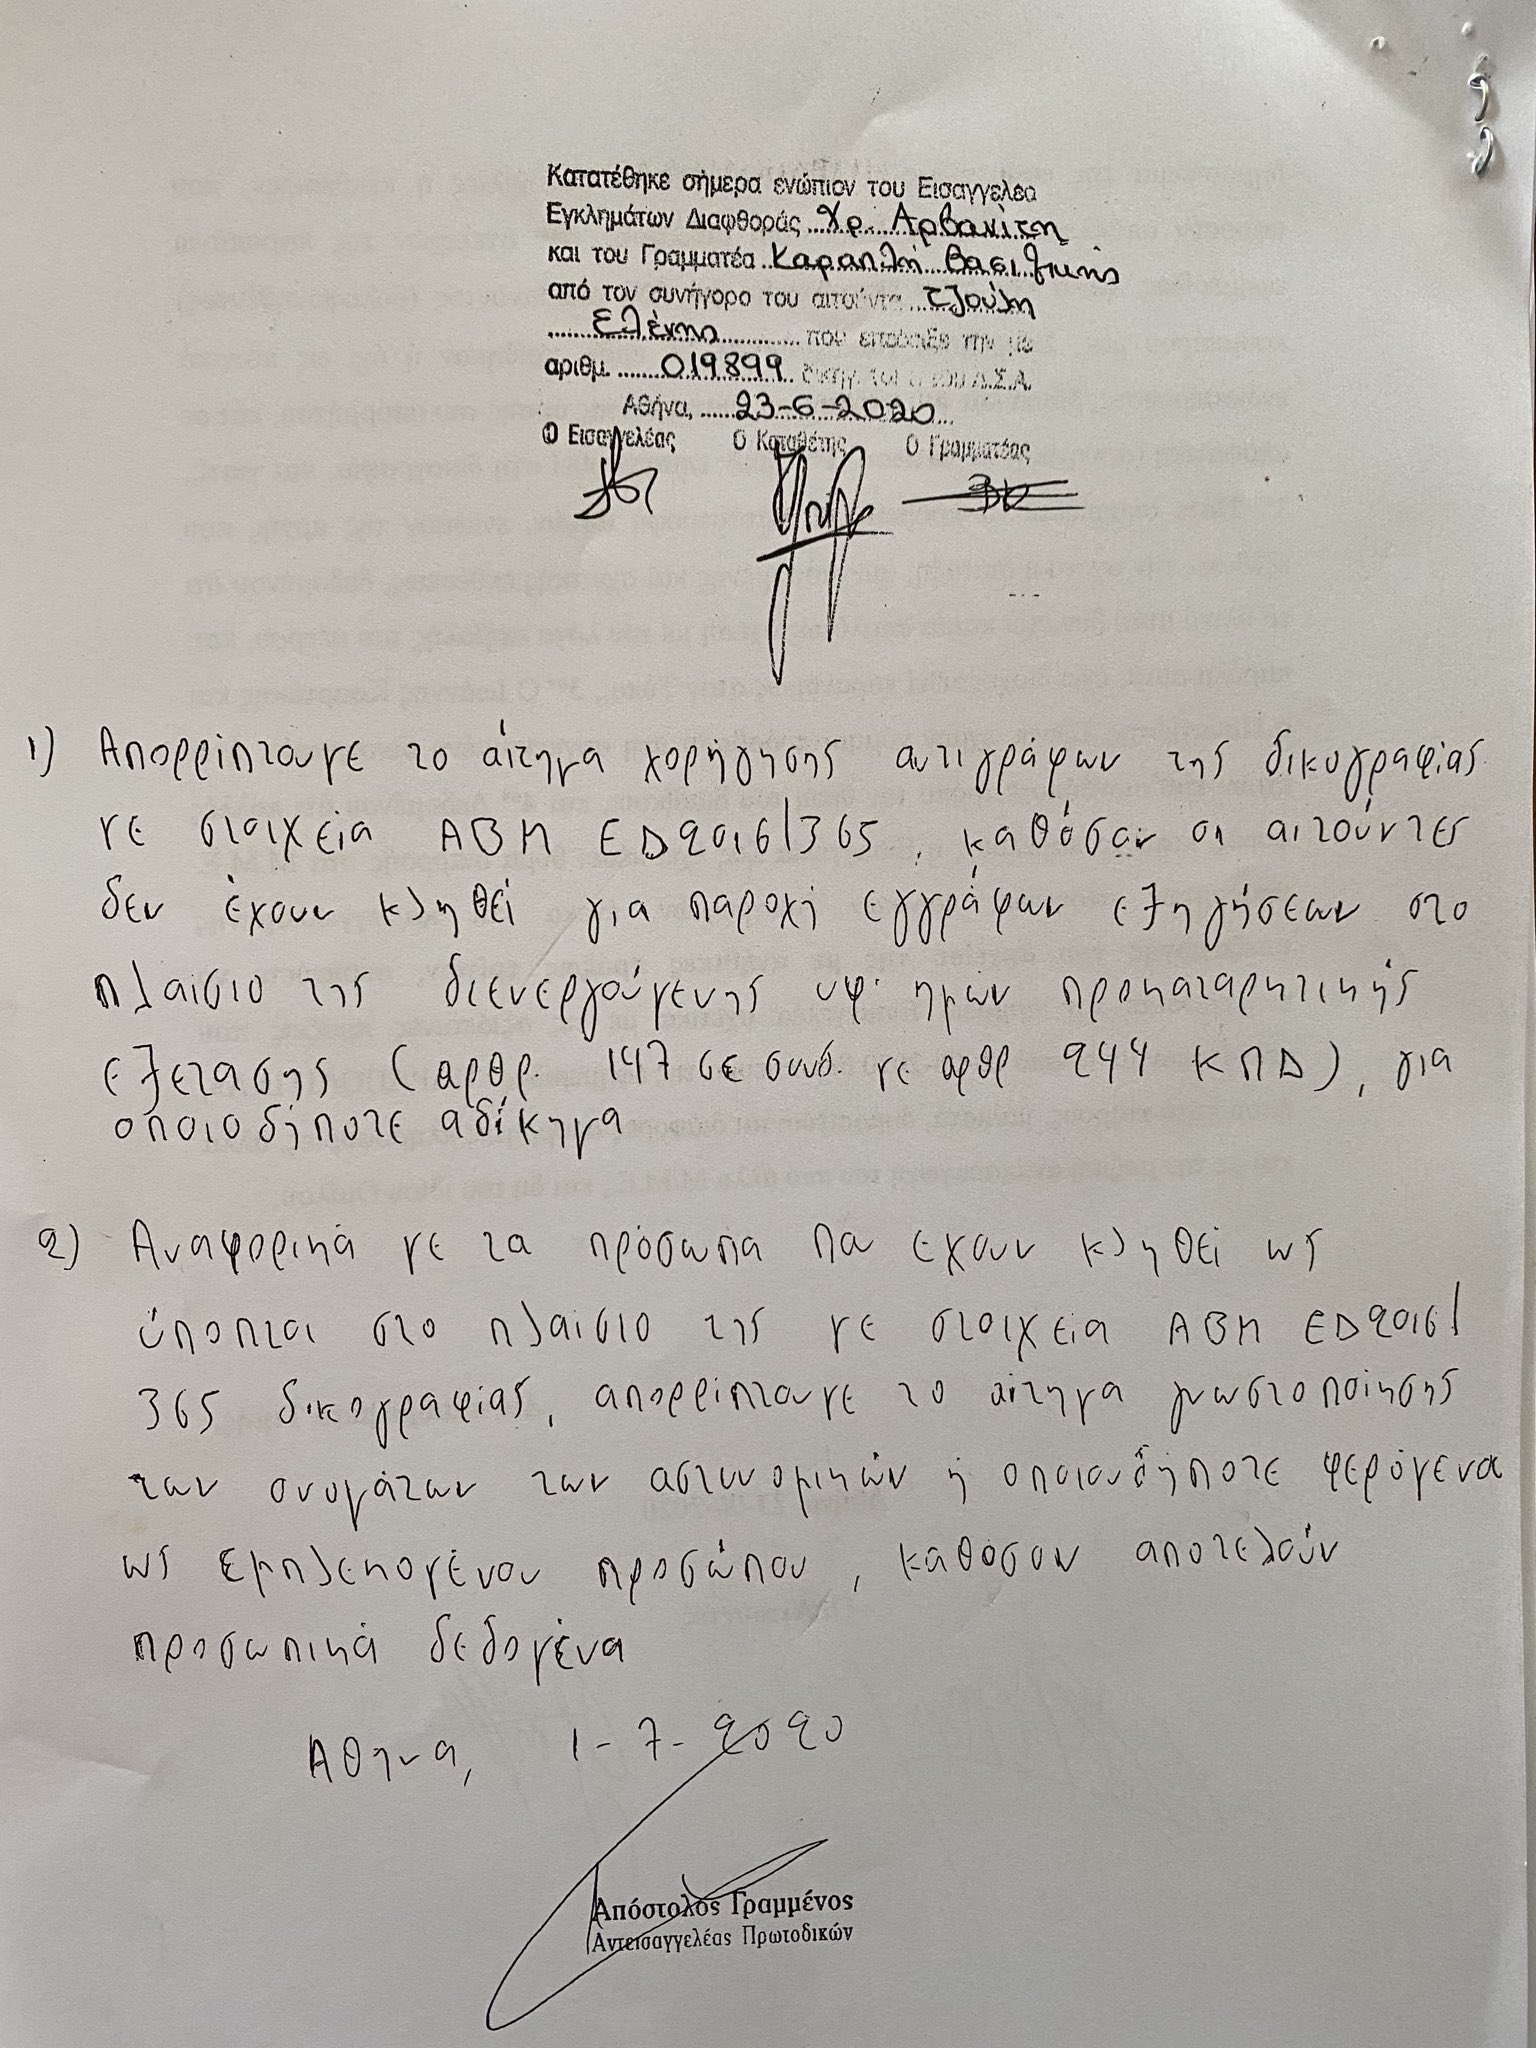 Κατατέθηκε σήμερα ενώπιον του Εισαγγελέα
Εγκλημάτων Διαφθοράς Χρ. Αρβανίτη
και του Γραμματέα Καραπλή Βασιλικής
από τον συνήγορο του αιτούντα Τζούλη
Ελένης που επέδειξε την με
αριθμ. 019899 Δ.Σ.Α.
Αθήνα, 23-6-2020
Ο Εισαγγελέας Ο Καταθέτης Ο Γραμματέας
1) Απορρίπτουμε το αίτημα χορήγησης αντιγράφων της δικογραφίας
με στοιχεία ΑΒΜ ΕΔ2016/365, καθόσον οι αιτούντες
δεν έχουν κληθεί για παροχή εγγράφων εξηγήσεων στο
πλαίσιο της διενεργούμενης υφ' ημών προκαταρκτικής
εξέτασης (αρθρ. 147 σε συνδ. με αρθρ 244 ΚΠΔ), για
οποιοδήποτε αδίκημα
2) Αναφορικά με τα πρόσωπα πα έχουν κληθεί ως
ύποπτοι στο πλαίσιο της με στοιχεία ΑΒΜ ΕΔ2016/
365 δικογραφίας, απορρίπτουμε το αίτημα γνωστοποίησης
των ονομάτων των αστυνομικών ή οποιουδήποτε φερόμενα
ως εμπλεκομένου προσώπου, καθόσον αποτελούν
προσωπικά δεδομένα
Αθήνα, 1-7-2020
Απόστολος Γραμμένος
Αντεισαγγελέας Πρωτοδικών